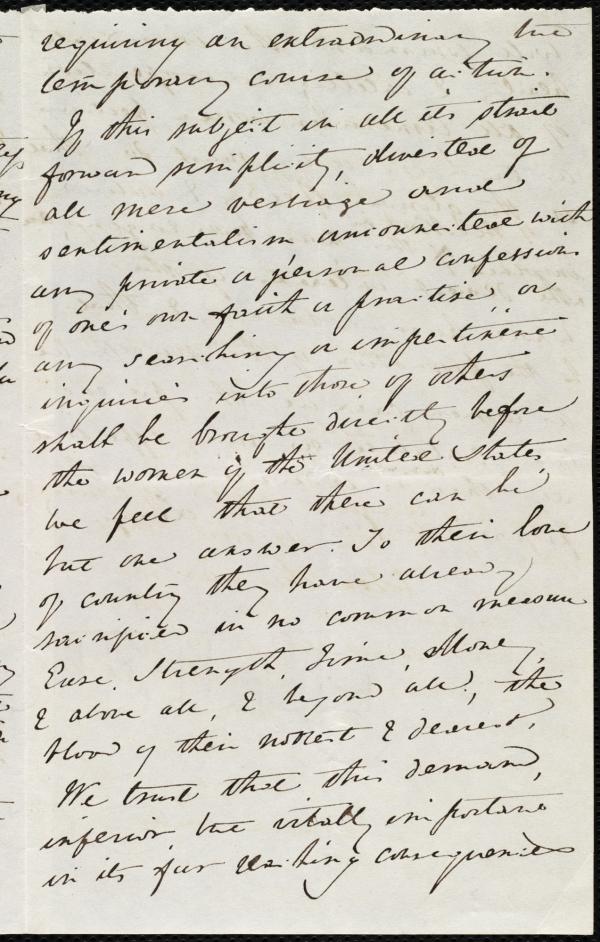 requiring an extraordinary but
temporary course of action.
If this subject in all its strait
forward simplicity, divested of
all mere verbiage and
sentimentalism unconnected with
any private or personal confession
of one's own faith or practise, or
any searching or impertinent
inquiries into those of others
shall be brought directly before
the women of the United States,
we feel that there can be
but one answer. To their love
of country they have already
sacrificed in no common measure
Ease, Strength, Time, Money,
& above all, & beyond all, the
blood of their noblest & dearest.
We trust that this demand,
inferior but vitally important
in its far reaching consequences